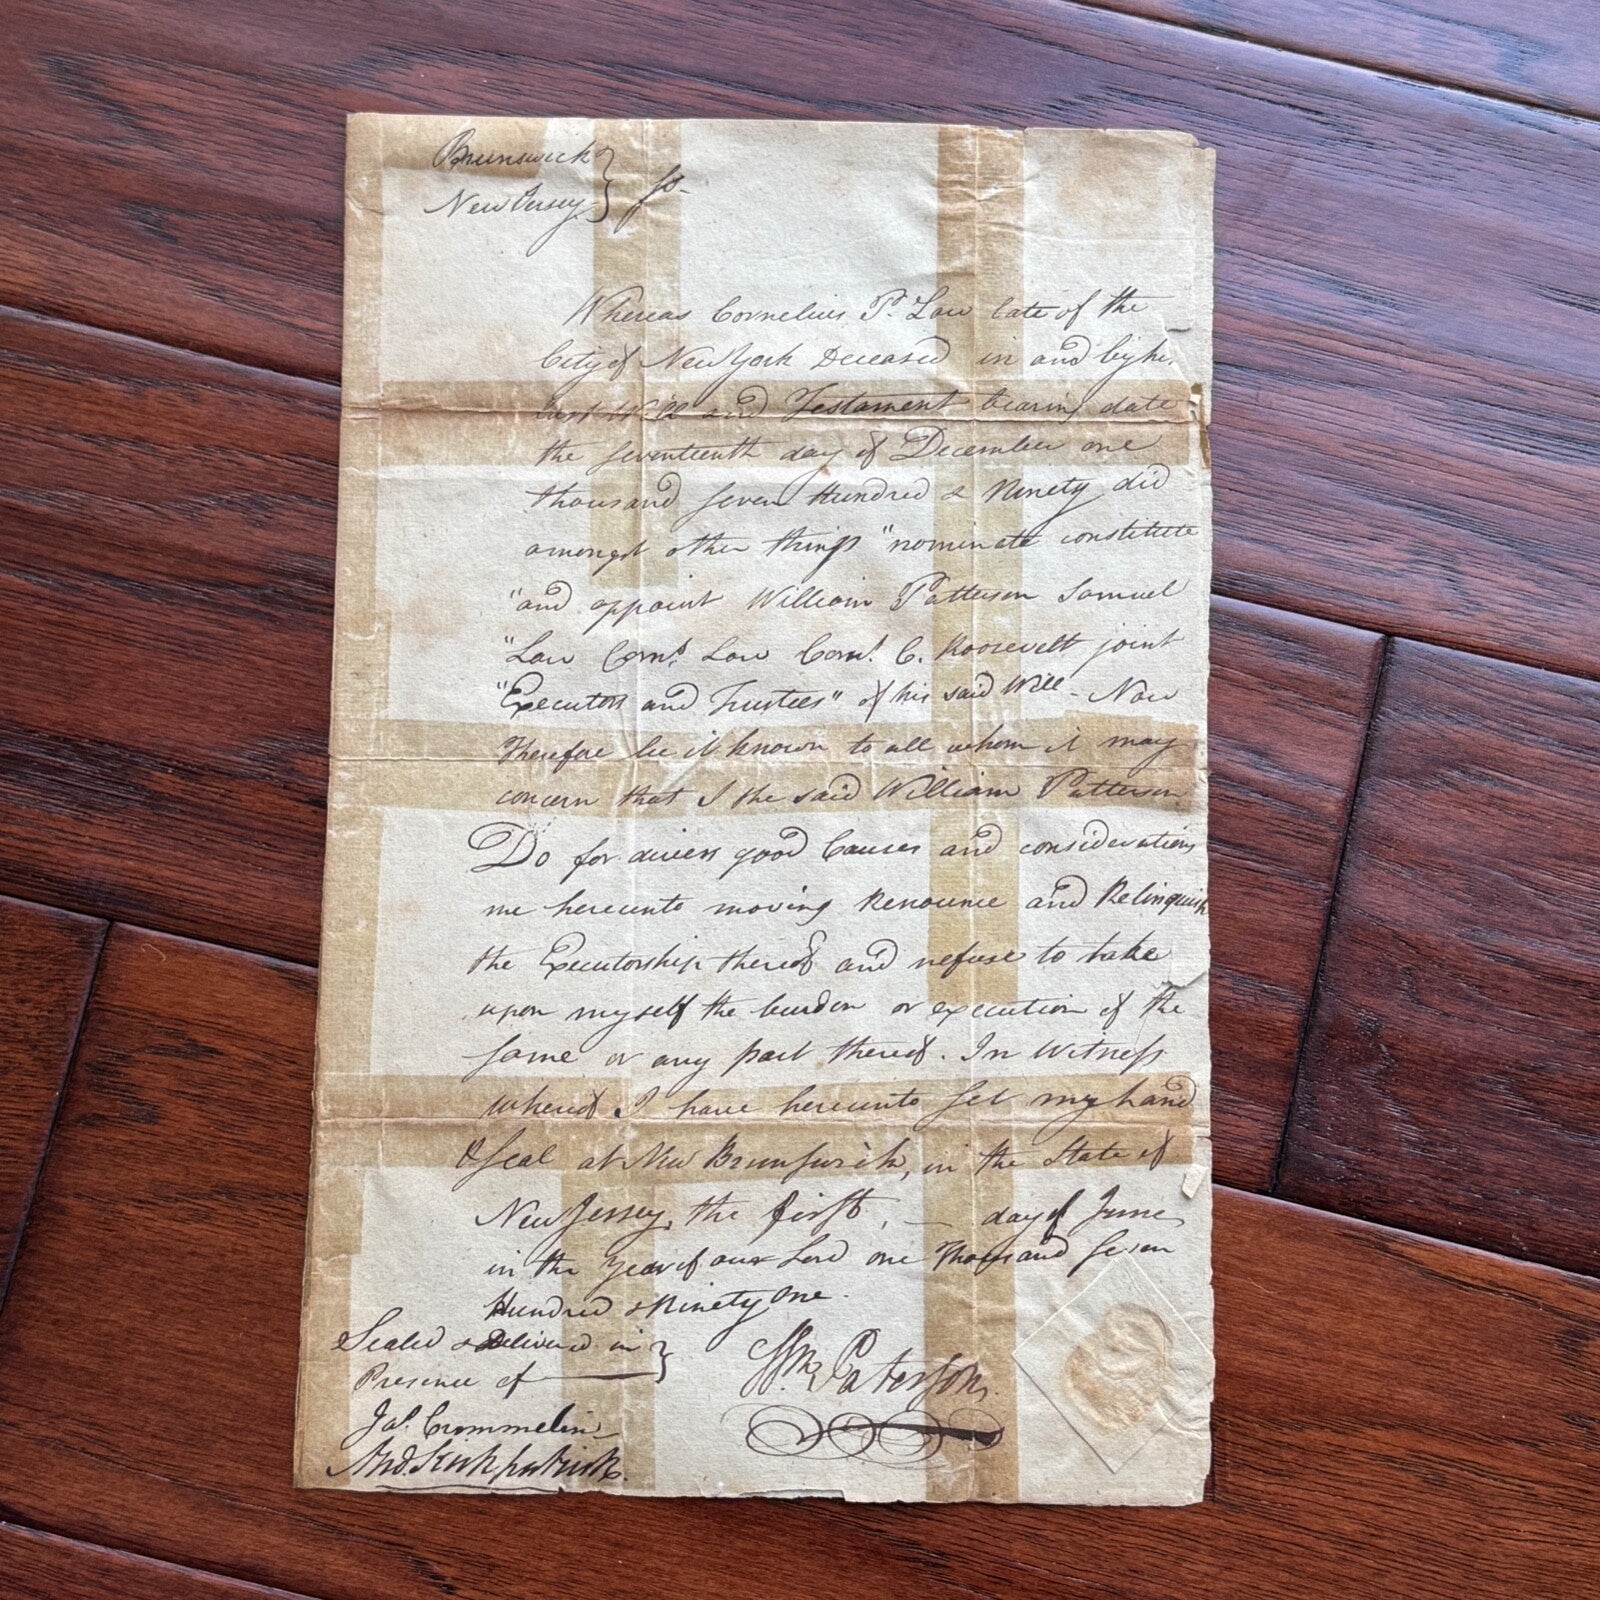 Brunswick
New Jersey } ss.
Whereas Cornelius P. Low late of the
City of New York Deceased in and by his
last Will and Testament bearing date
the seventeenth day of December one
thousand seven Hundred & Ninety did
amongst other things "nominate constitute
"and appoint William Patterson Samuel
"Low Corns. Low Corns. C. Roosevelt joint
"Executors and Trustees" of his said Will - Now
Therefore be it known to all whom it may
concern that I the said William Patterson
Do for divers good Causes and considerations
me hereunto moving Renounce and Relinquish
the Executorship thereof and refuse to take
upon myself the burden or execution of the
same or any part thereof. In Witness
whereof I have hereunto set my hand
& seal at New Brunswick, in the State of
New Jersey, the first, day of June
in the Year of our Lord one Thousand Seven
Hundred & Ninety One.
Sealed & Delivered in }
Presence of
Wm Paterson.
Jas. Crommelin
And. Kirkpatrick.